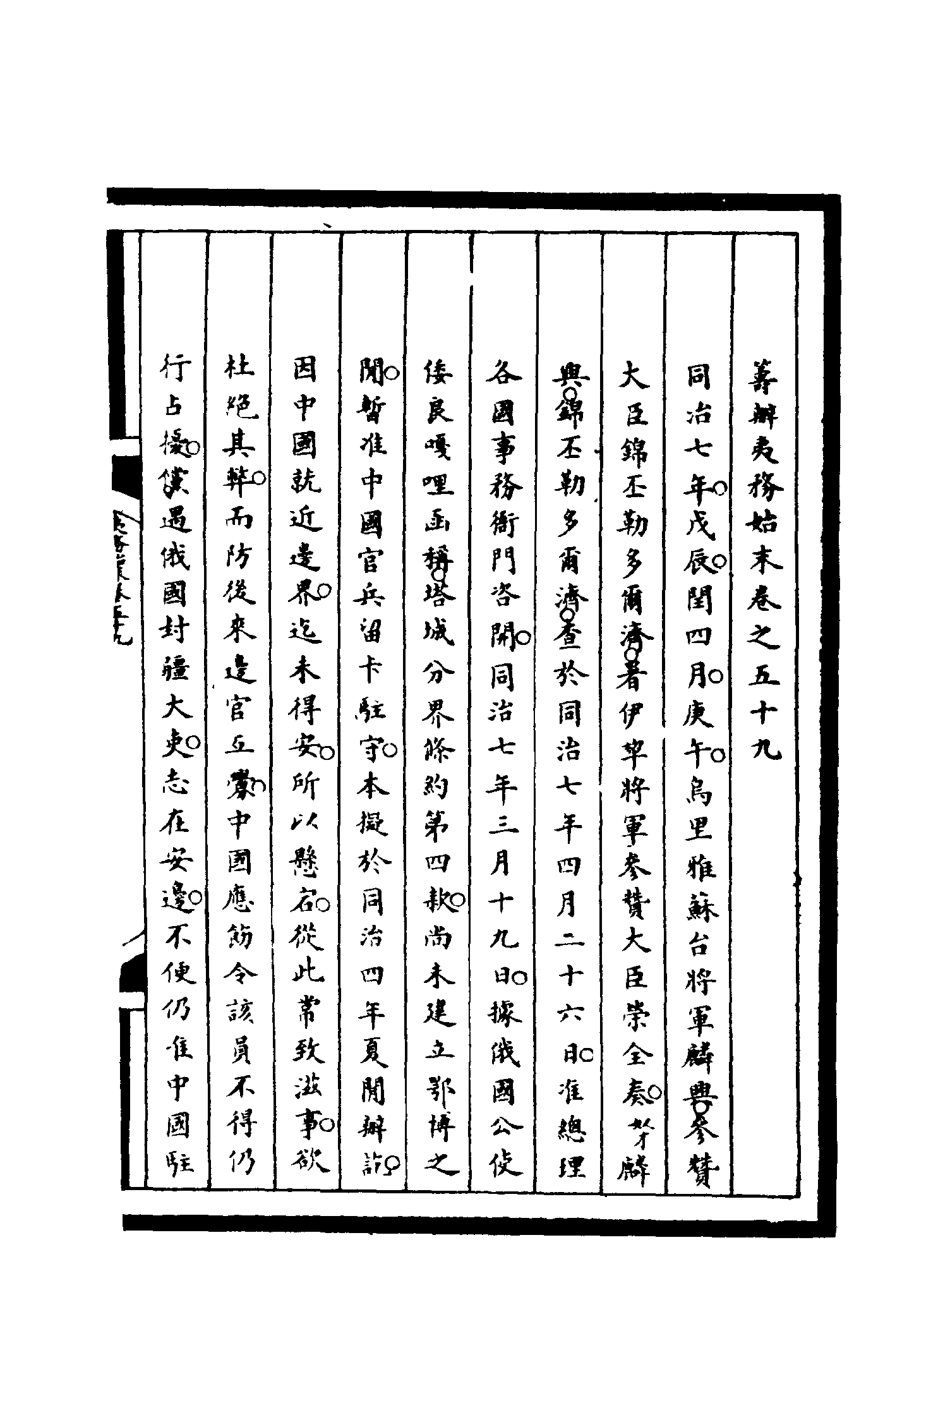 籌辦夷務始末卷之五十九
同治七年。戊辰。閏四月。庚午。烏里雅蘇台將軍麟興。參贊
大臣錦丕勒多爾濟。署伊犂將軍參贊大臣榮全奏。奴才麟
興。錦丕勒多爾濟。查於同治七年四月二十六日。准總理
各國事務衙門咨開。同治七年三月十九日。據俄國公使
倭良嘎哩函稱。塔城分界條約第四款。尚未建立鄂博之
閒。暫准中國官兵留卡駐守。本擬於同治四年夏閒辦訖。
因中國就近邊界。迄未得安。所以懸宕。從此常致滋事。欲
杜絕其弊。而防後來邊官互釁。中國應飭令該員不得仍
行占擾。儻遇俄國封疆大吏。志在安邊。不便仍准中國駐